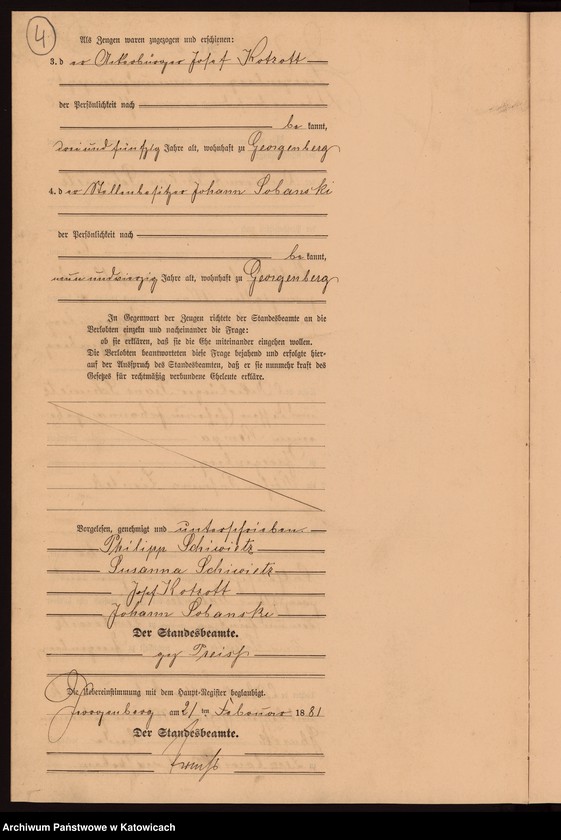 4.
Als Zeugen waren zugezogen und erschienen:
3. der Ackerbürger Josef Kotzott
der Persönlichkeit nach
be kannt,
dreiundfünfzig Jahre alt, wohnhaft zu Georgenberg
4. der Stellenbesitzer Johann Sobanski
der Persönlichkeit nach
be kannt,
neunundvierzig Jahre alt, wohnhaft zu Georgenberg
In Gegenwart der Zeugen richtete der Standesbeamte an die
Verlobten einzeln und nacheinander die Frage:
ob sie erklären, daß sie die Ehe miteinander eingehen wollen.
Die Verlobten beantworteten diese Frage bejahend und erfolgte hier-
auf der Ausspruch des Standesbeamten, daß er sie nunmehr kraft des
Gesetzes für rechtmäßig verbundene Eheleute erkläre.
Vorgelesen, genehmigt und unterschrieben
Philipp Schiwietz
Susanna Schiwietz
Josef Kotzott
Johann Sobanski
Der Standesbeamte.
gez
Die Uebereinstimmung mit dem Haupt-Register beglaubigt.
Georgenberg am 21 ten Februar 1881
Der Standesbeamte.
Archiwum Państwowe w Katowicach